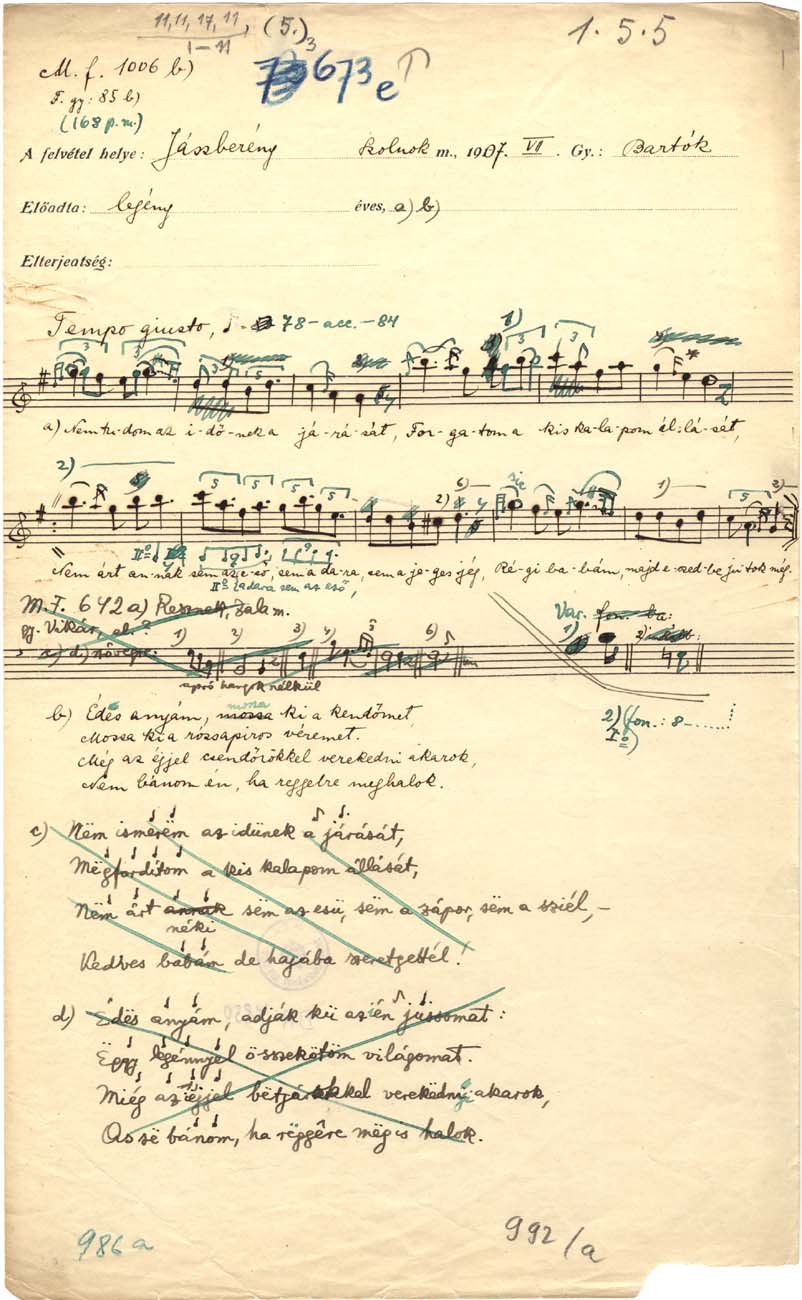 11, 11, 17, 11, (5.)3
1–11
1.5.5
M. f. 1006 b)
F. gy: 85 b)
(168 p.m.)
673e
A felvétel helye: Jászberény Szolnok m., 1907. VII. Gy.: Bartók
Előadta: legény éves, a) b)
Elterjedtség:
Tempo giusto, 78 – acc. – 84
1)
a) Nem tu-dom az i-dő-nek a já-rá-sát, For-ga-tom a kis ka-la-pom ál-lá-sát,
2)
2) 6) 1) 3)
Nem árt an-nak sem az e-ső, sem a da-ra, sem a je-ges jég, Ré-gi ba-bám, majd e-szed-be ju-tok még.
IIo ladara sem az eső,
M.F. 642 a) Resznek, Zala m.
gy. Vikár, el. ?
a) d) növegre:
1) 2) 3) 4) 6)
apró hangok nélkül
Var. fon. ba:
1) 2)
2) (fon.: 8-......
Io)
b) Édes anyám, mossa ki a kendőmet,
Mossa ki a rózsapiros véremet.
Még az éjjel csendőrökkel verekedni akarok,
Nem bánom én, ha reggelre meghalok.
c) Nëm ismerëm az idünek a járását,
Mëgfordítom a kis kalapom állását,
Nëm árt annak sëm az esü, sëm a zápor, sëm a sziél, –
néki
Kedves babám de hajába szeretgettél!
d) Édës anyám, adják kü az ién jussomat:
Ëggy legénnyel összekötöm világomat.
Miég az iéjjel bëtjárokkel verekëdnyi akarok,
As së bánom, ha rëggêre mëg is halok.
986 a
992/a